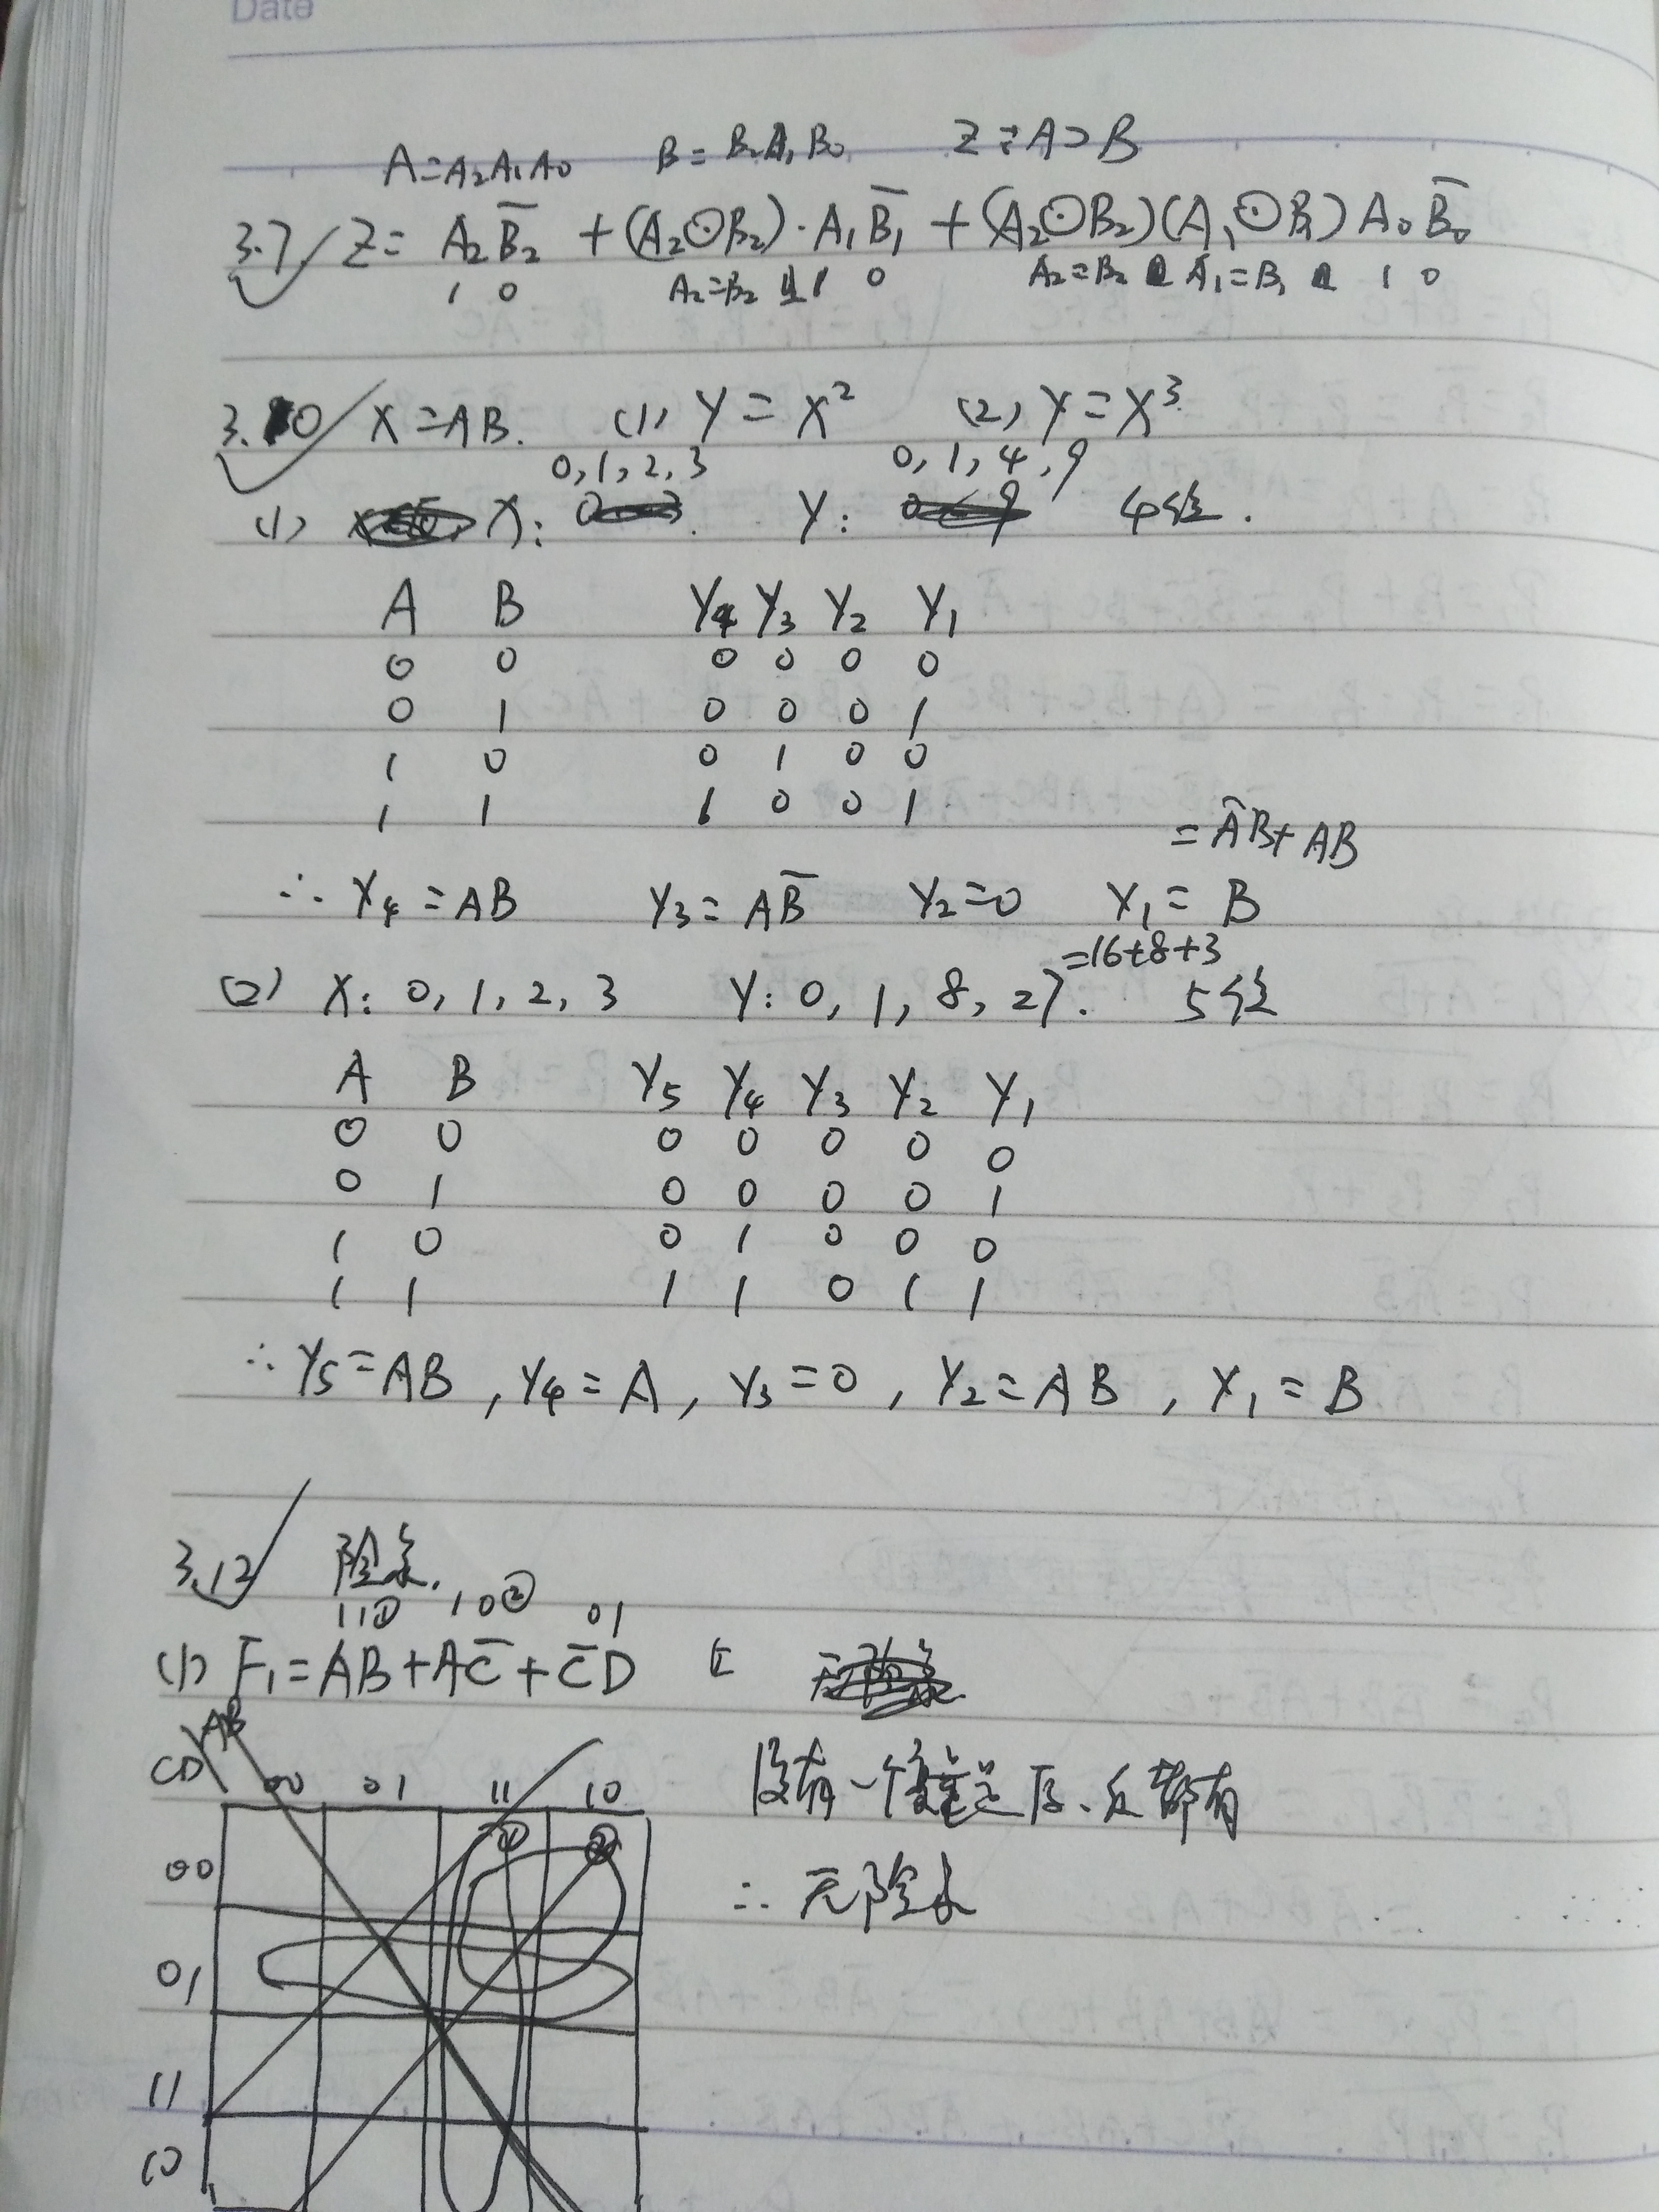 Date
A=A₂A₁A₀ B=B₂B₁B₀ Z:A>B
3.7 Z= A₂B̅₂ +(A₂⊙B₂)·A₁B̅₁ +(A₂⊙B₂)(A₁⊙B₁)A₀B̅₀
1 0 A₂=B₂ 1 0 A₂=B₂ A₁=B₁ 1 0
3.10 X=AB. (1) Y=X² (2) Y=X³
0,1,2,3 0,1,4,9
(1) X: Y: 4位.
A B Y₄ Y₃ Y₂ Y₁
0 0 0 0 0 0
0 1 0 0 0 1
1 0 0 1 0 0
1 1 1 0 0 1
=A̅B+AB
∴ Y₄=AB Y₃=AB̅ Y₂=0 Y₁=B
=16+8+3
(2) X: 0,1,2,3 Y: 0,1,8,27. 5位
A B Y₅ Y₄ Y₃ Y₂ Y₁
0 0 0 0 0 0 0
0 1 0 0 0 0 1
1 0 0 1 0 0 0
1 1 1 1 0 1 1
∴ Y₅=AB, Y₄=A, Y₃=0, Y₂=AB, Y₁=B
3.12 险象.
11① 10② 01
(1) F₁=AB+AC̅+C̅D
CD AB
00 01 11 10
没有一个变量是原、反都有
① ②
00
∴ 无险象
01
11
10